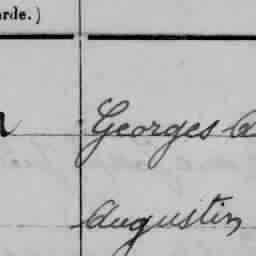 arde.)
Georges
Augustin